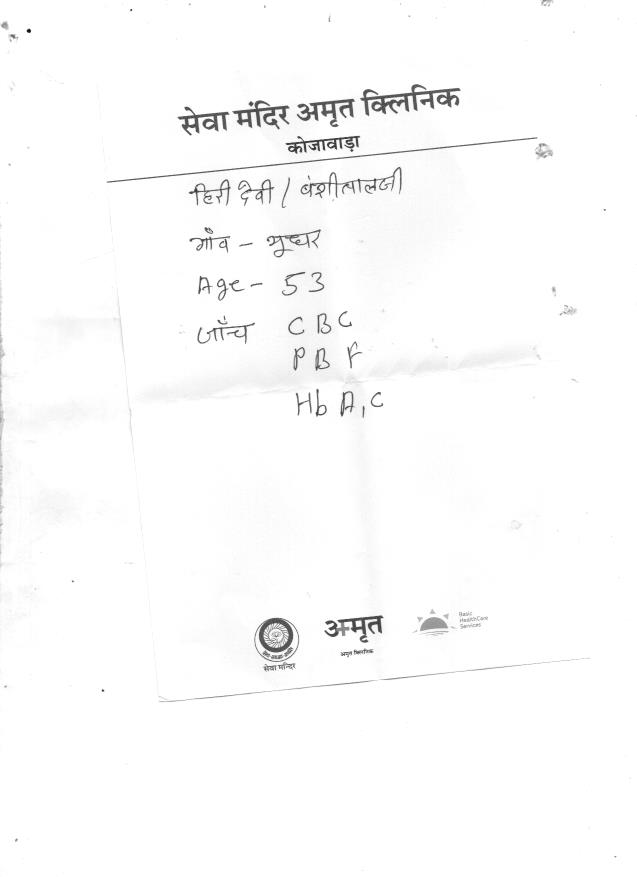 सेवा मंदिर अमृत क्लिनिक
कोजावाड़ा
हिरी देवी / बंशीलालजी
गाँव - भूधर
Age - 53
जाँच CBC
PBF
HbA1C
सेवा मन्दिर
अमृत
अमृत क्लिनिक
Basic
HealthCare
Services